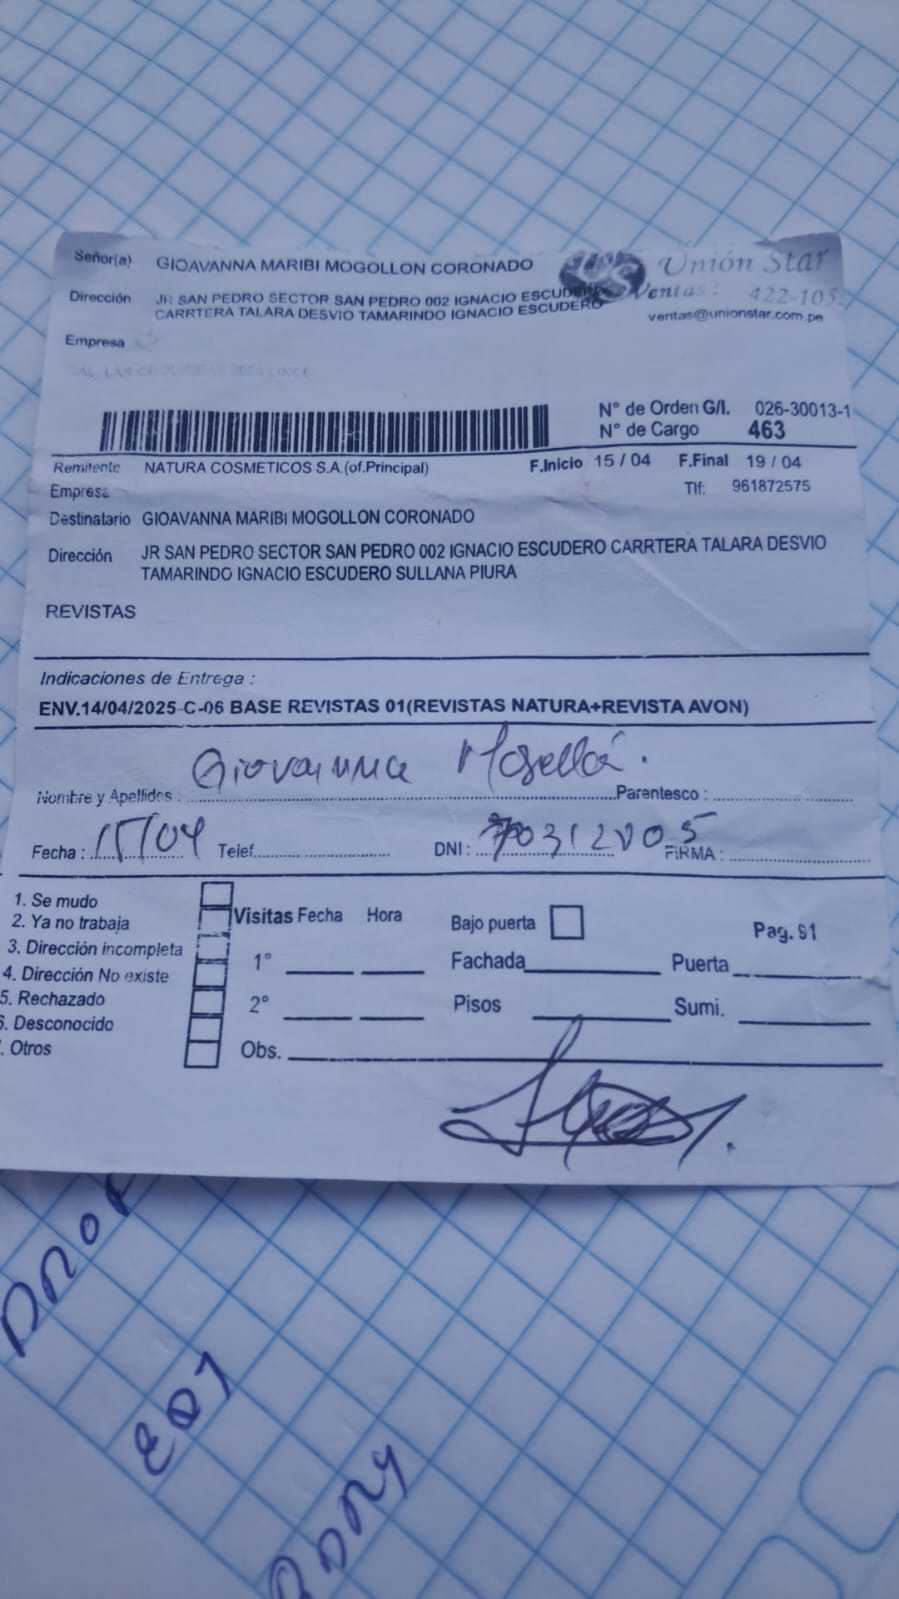 Señor(a) GIOAVANNA MARIBI MOGOLLON CORONADO
Unión Star
Dirección JR SAN PEDRO SECTOR SAN PEDRO 002 IGNACIO ESCUDERO
CARRTERA TALARA DESVIO TAMARINDO IGNACIO ESCUDERO
Ventas: 422-105
ventas@unionstar.com.pe
Empresa
N° de Orden G/I. 026-30013-1
N° de Cargo 463
Remitente NATURA COSMETICOS S.A.(of.Principal) F.Inicio 15 / 04 F.Final 19 / 04
Empresa Tlf: 961872575
Destinatario GIOAVANNA MARIBI MOGOLLON CORONADO
Dirección JR SAN PEDRO SECTOR SAN PEDRO 002 IGNACIO ESCUDERO CARRTERA TALARA DESVIO
TAMARINDO IGNACIO ESCUDERO SULLANA PIURA
REVISTAS
Indicaciones de Entrega :
ENV.14/04/2025-C-06 BASE REVISTAS 01(REVISTAS NATURA+REVISTA AVON)
Nombre y Apellidos : Giovanna Parentesco :
Fecha : 15/04 Telef. DNI : FIRMA :
1. Se mudo
2. Ya no trabaja
3. Dirección incompleta
4. Dirección No existe
5. Rechazado
6. Desconocido
. Otros
Visitas Fecha Hora Bajo puerta Pag. 91
1° Fachada Puerta
2° Pisos Sumi.
Obs.